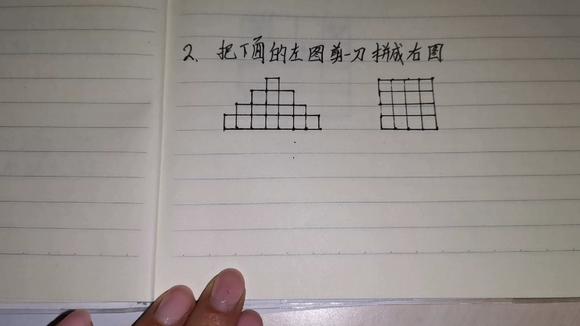 2、把下面的左图剪一刀拼成右图